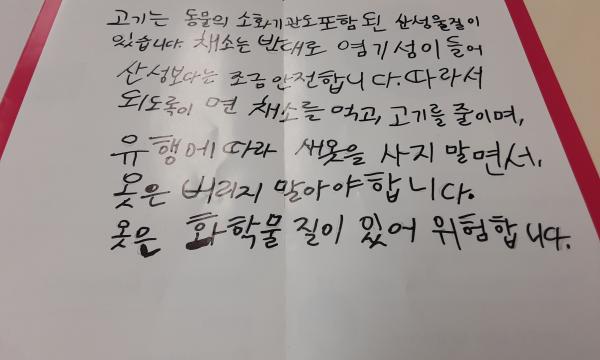 고기는 동물의 소화기관도 포함 된 산성물질이
있습니다. 채소는 반대로 염기성이 들어
산성보다는 조금 안전합니다. 따라서
되도록이 면 채소를 먹고, 고기를 줄이며,
유행에 따라 새옷을 사지 말면서,
옷은 버리지 말아야 합니다.
옷은 화학물질이 있어 위험합니다.